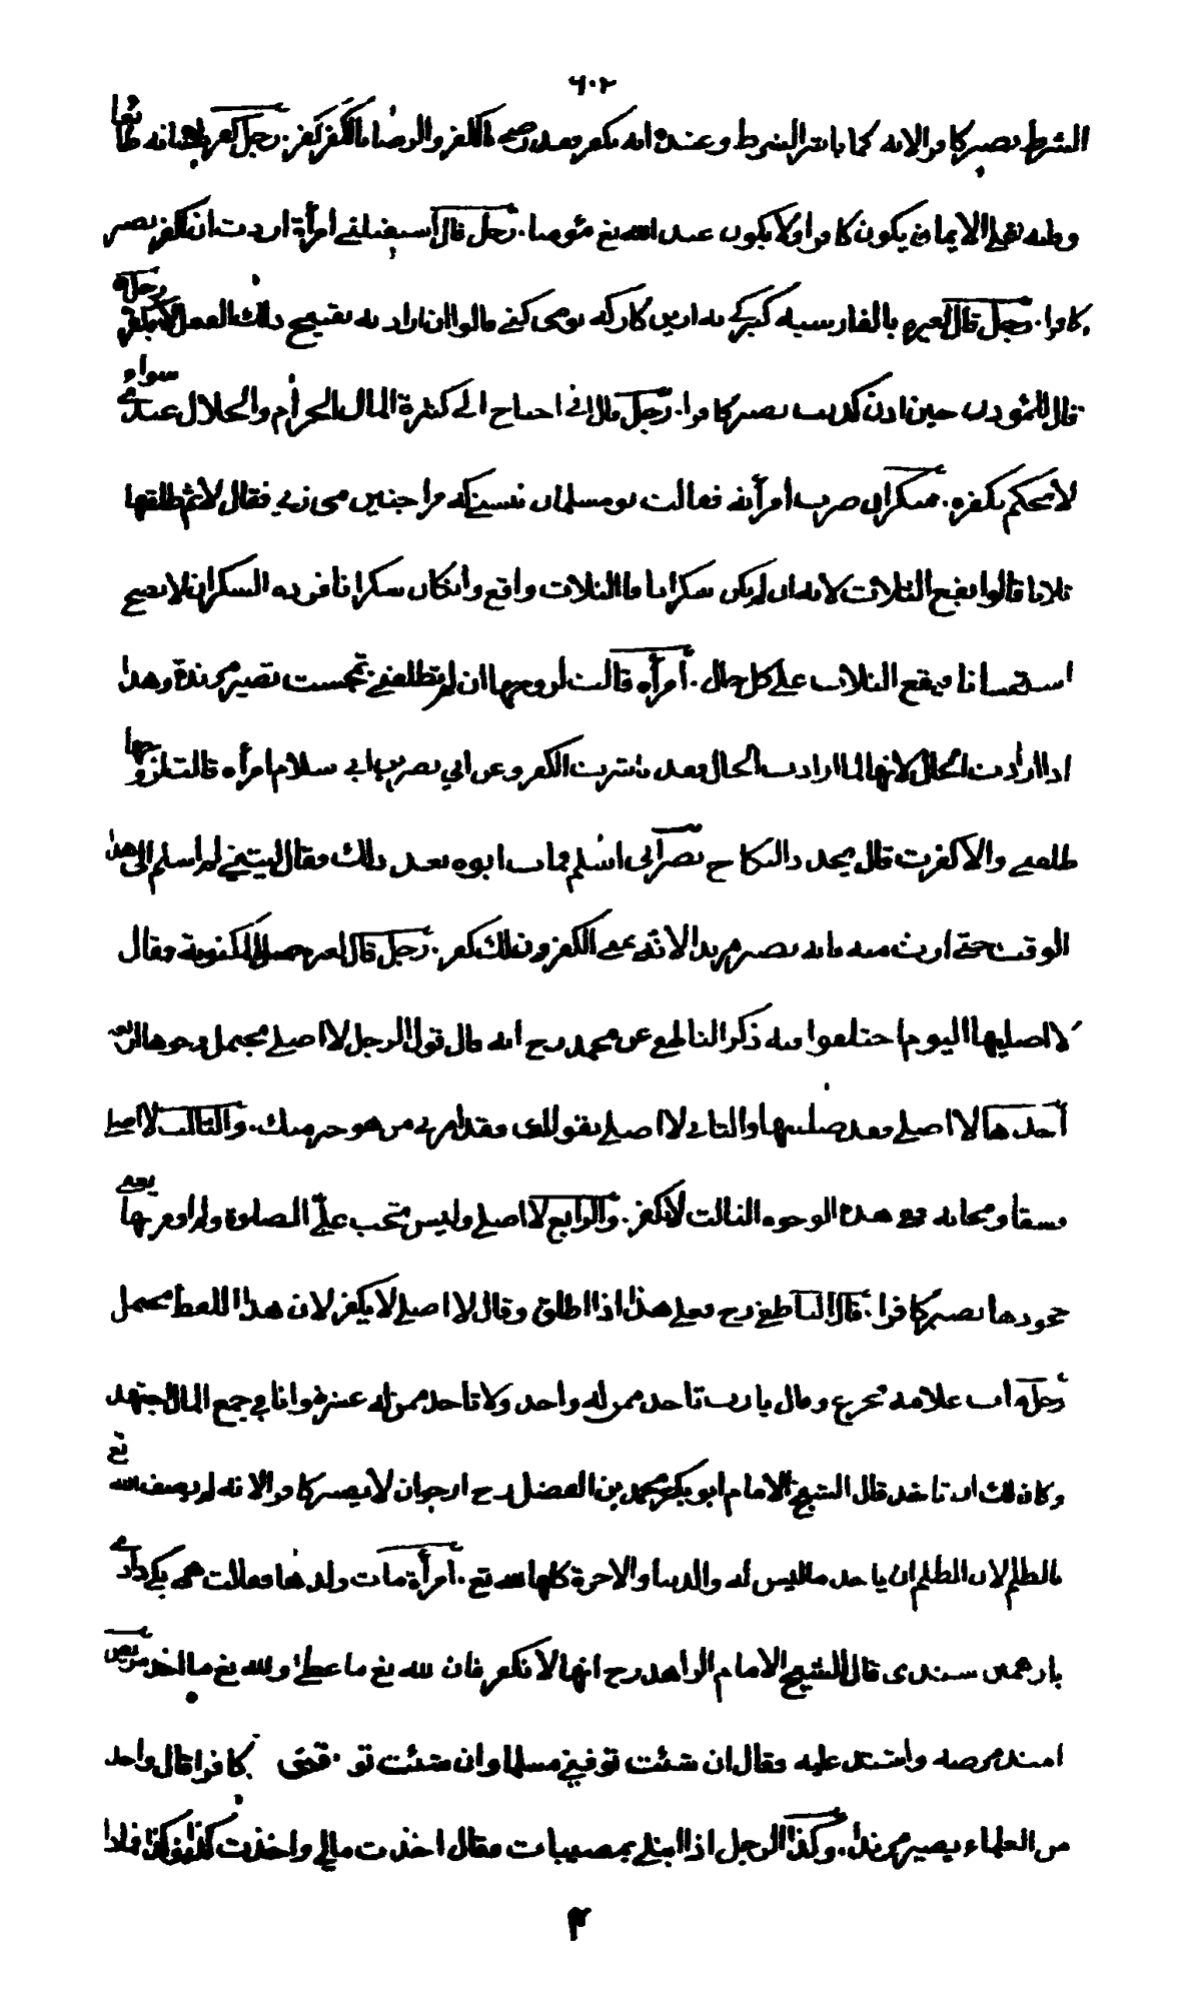 ٦٠٢
الشرط يصير كافرا لانه كما باشر الشرط وعنده انه يكفر فقد رضي بالكفر والرضا بالكفر كفر. رجل كفر بلسانه طائعا
وقلبه على الايمان يكون كافرا ولا يكون عند الله تع مؤمنا. رجل قال امرأة اردت ان اكفر يصير
كافرا. رجل قال لغيره بالفارسية كبركي به ازين كار كه تو مى كنى قالوا ان اراد به تقبيح ذلك العمل لا يكفر رجل
قال للمؤذن حين اذن كذبت يصير كافرا. رجل قال اني احتاج الى كثرة المال الحرام والحلال عندي سواء
لا يحكم بكفره. سكران ضرب امرأته فقالت تو مسلمان نيستى كه مرا چنين مى زنى فقال لا ثم طلقها
ثلاثا قالوا يقع الثلاث لانه ان لم يكن سكرانا فالثلاث واقع وانكان سكرانا فردة السكران لا تصح
استحسانا فيقع الثلاث على كل حال. امرأة قالت لزوجها ان لم تطلقني تمجست تصير مرتدة وهذا
اذا ارادت الحال لانها لما ارادت الحال فقد باشرت الكفر وعن ابي نصر بن ابي سلام امرأة قالت لزوجها
طلقني والا كفرت قال يجدد النكاح نصراني اسلم فمات ابوه بعد ذلك فقال ليتني لم اسلم الى هذا
الوقت حتى ارث منه فانه يصير مرتدا لانه تمنى الكفر وذلك كفر. رجل قال لغيره صل المكتوبة فقال
لا اصليها اليوم اختلفوا فيه ذكر الناطفي عن محمد رح انه قال قول الرجل لا اصلي يحتمل وجوها اربعة
احدها لا اصلي فقد صليتها والثاني لا اصلي بقولك فقد امرني من هو خير منك. والثالث لا اصلي
فسقا ومجانة ففي هذه الوجوه الثلاث لا يكفر. والرابع لا اصلي وليس تجب علي الصلوة ولم اومر بها يعني
جحودها يصير كافرا. قال الناطفي رح فعلى هذا اذا اطلق وقال لا اصلي لا يكفر لان هذا اللفظ محتمل
رجل مات غلامه فجزع وقال يا رب تاخذ ممن له واحد ولا تاخذ ممن له عشرة وانا في جمع المال اجتهد
وكان لك ان تاخذ قال الشيخ الامام ابو بكر محمد بن الفضل رح ارجو ان لا يصير كافرا لانه لم يصف الله تع
بالظلم لان الظلم ان ياخذ ما ليس له والدنيا والاخرة كلها لله تع. امرأة مات ولدها فقالت همه يكى دادى
باز همين ستدى قال الشيخ الامام الزاهد رح انها لا تكفر فان لله تع ما عطى ولله تع ما اخذ مريض
اشتد مرضه واشتد عليه فقال ان شئت توفني مسلما وان شئت توفني كافرا قال واحد
من العلماء يصير مرتدا. وكذا الرجل اذا ابتلي بمصيبات فقال اخذت مالي واخذت كذا وكذا فماذا